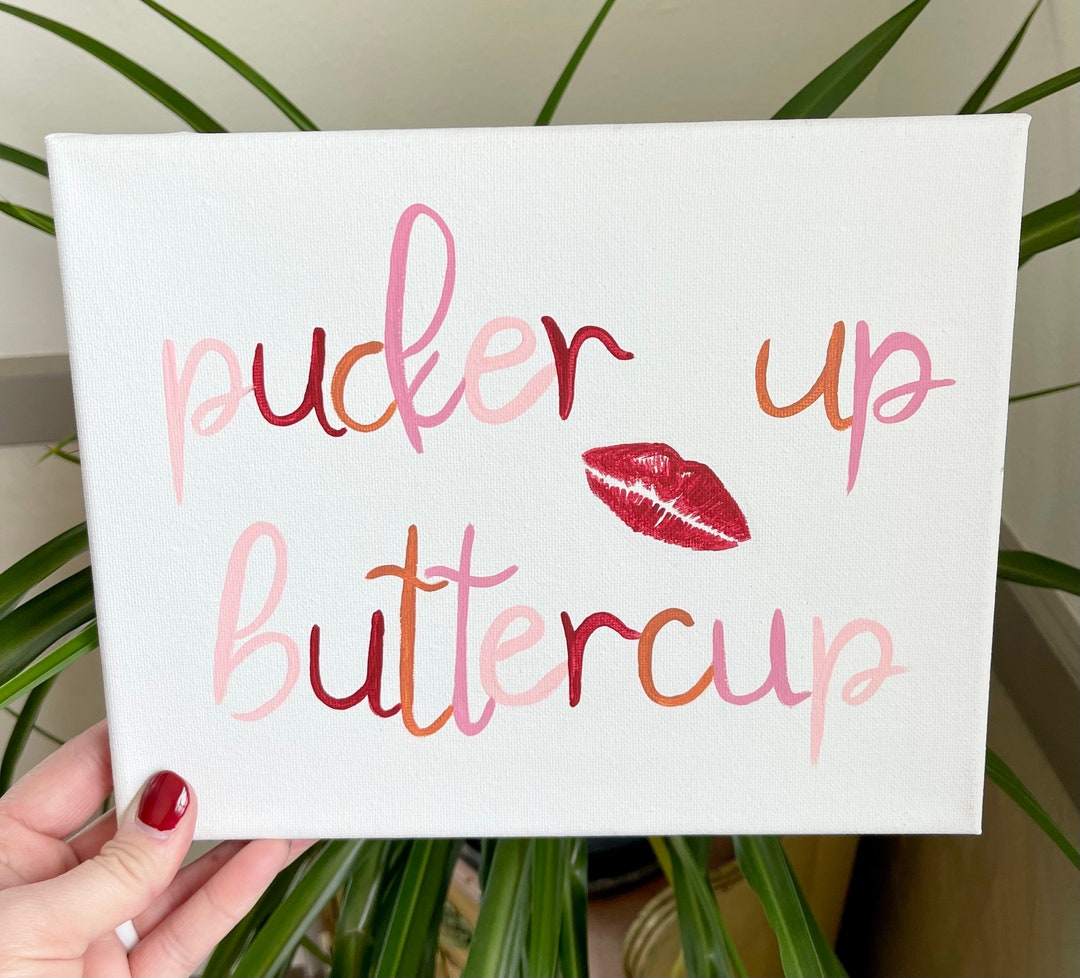 pucker up
buttercup